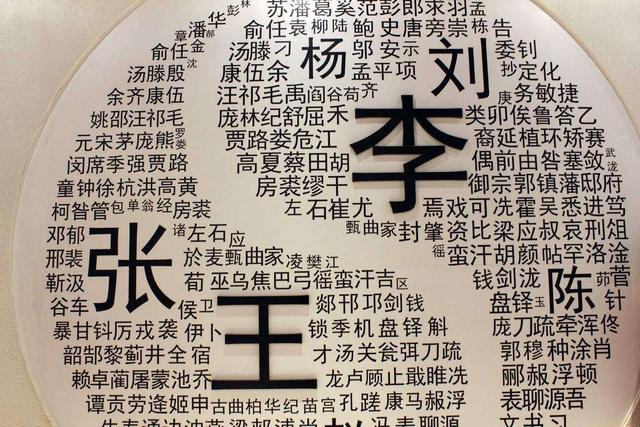 彭林
苏潘葛奚范彭郎求羽孟
潘郝华
俞任袁柳陆鲍史唐旁崇栋告
俞任章金
汤滕刁杨邬安示刘委钊
汤滕殷沈
康伍余孟平项抄定化
余齐康伍汪祁毛禹阎谷荀齐庚务敏捷
姚邵汪祁毛庞林纪舒屈禾李类卯俟鲁答乙
元宋茅庞熊罗娄贾路娄危江裔延植环矫赛
闵席季强贾路高夏蔡田胡偶前由咎塞敛武沈
童钟徐杭洪高黄房裘缪干御宗郭镇藩邸府
柯昝管包单翁经房裘左石崔尤焉戏可冼霍吴悉进笃
甄曲家封肇资比梁应叔哀刑俎
邓郁张诸左石应徭蛮汗胡颜帖罕洛淦
邢裴於麦甄曲家凌樊江钱剑泷陈茆菅
靳汲荀巫乌焦巴弓徭蛮汗吉区盘铎玉针
谷车侯卫王郯邗邛剑钱
暴甘钭厉戎袭伊卜锁季机盘铎斛庞刀疏牵浑佟
韶郜黎蓟井全宿才汤关瓮弭刀疏郭穆种涂肖
赖卓蔺屠蒙池乔龙卢顾止戢睢冼郦郝浮顿
谭贡劳逄姬申古曲柏华纪苗宫孔蹉康马赧浮表聊源吾
冯表聊源文书习